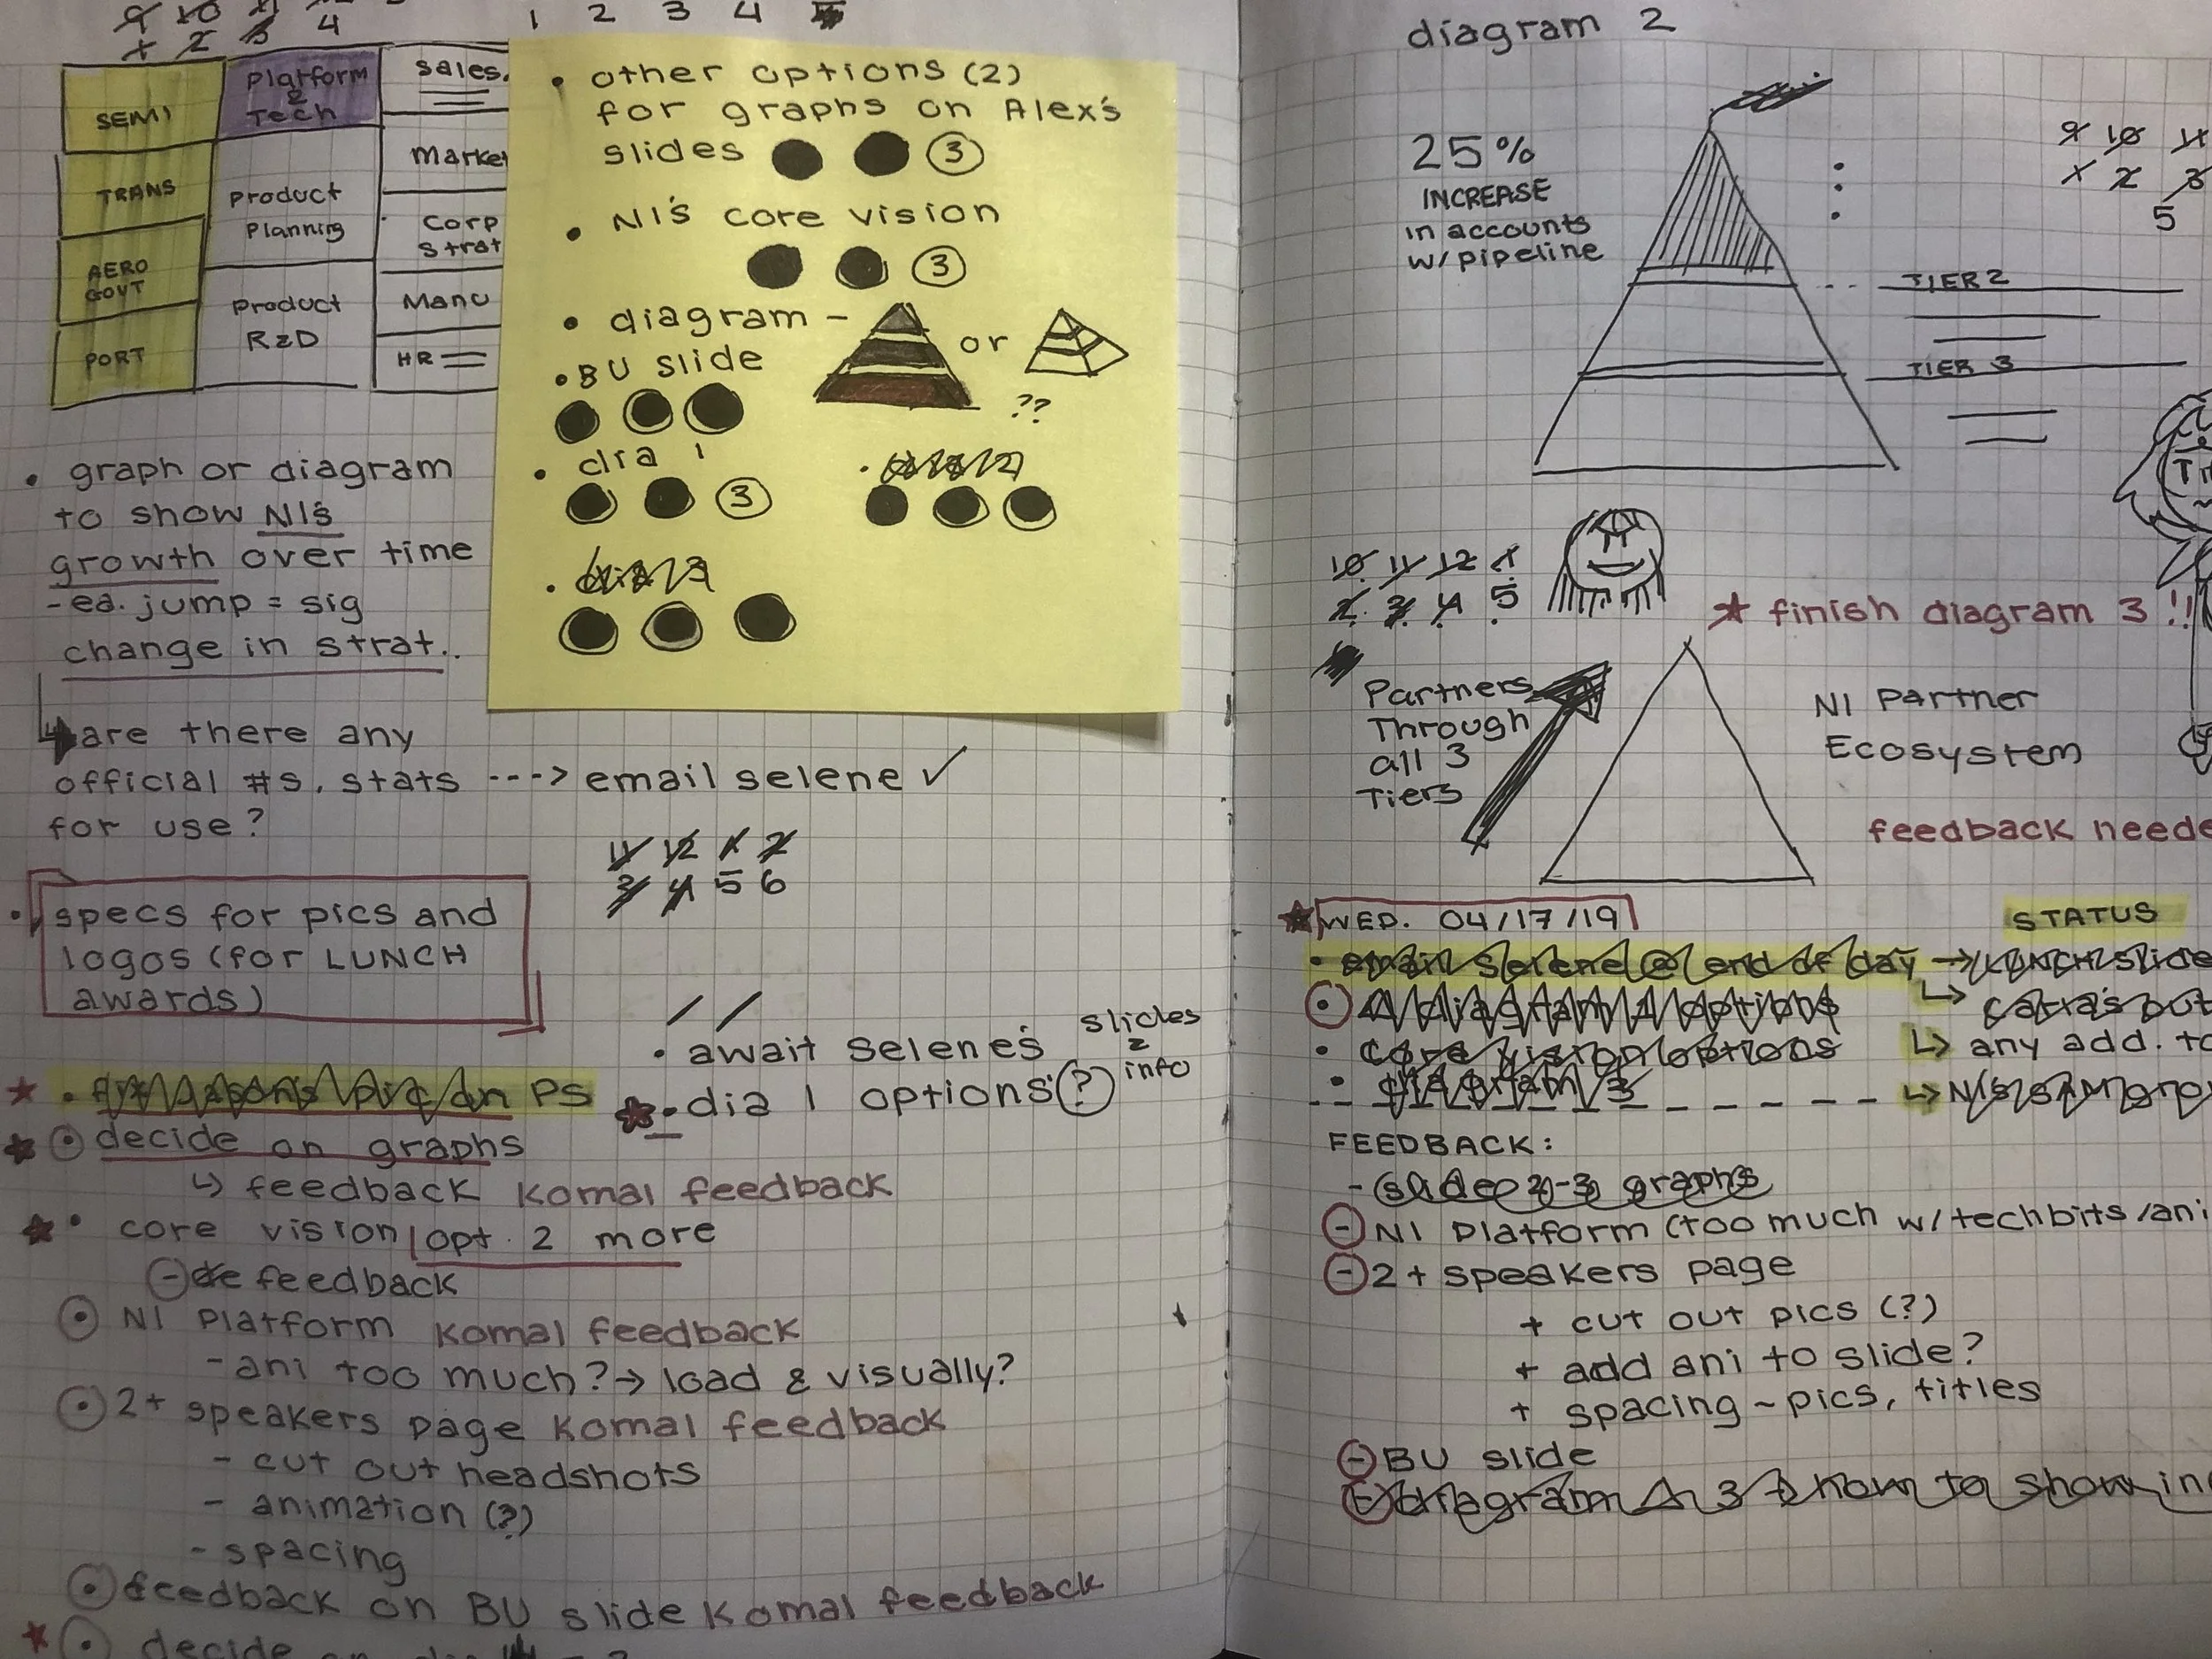 9 10 11
1 2 3 4
1 2 3 4
SEMI
TRANS
AERO
GOVT
PORT
Platform
&
Tech
Product
Planning
Product
R&D
Sales
Market
Corp
Strat
Manu
HR
• other options (2)
for graphs on Alex's
slides 3
• NI's core vision
3
• diagram - or
??
• BU slide
• dia 1
3
• dia 2
• dia 3
• graph or diagram
to show NI's
growth over time
- ea. jump = sig
change in strat..
are there any
official #s, stats ---> email selene ✓
for use?
11 12 1 2
3 4 5 6
• specs for pics and
logos (for LUNCH
awards)
• await Selene's slides
& info
• PS
• dia 1 options (?)
decide on graphs
↳ feedback Komal feedback
• core vision | opt. 2 more
- feedback
NI Platform Komal feedback
- ani too much? → load & visually?
2+ speakers page Komal feedback
- cut out headshots
- animation (?)
- spacing
feedback on BU slide Komal feedback
decide on
diagram 2
25%
INCREASE
in accounts
w/ pipeline
9 10 11
1 2 3
5
TIER 2
TIER 3
10 11 12 1
2 3 4 5
★ finish diagram 3 !!
Partners
Through
all 3
Tiers
NI Partner
Ecosystem
feedback neede
★ WED. 04/17/19
STATUS
• email Selene @ end of day → LUNCH slide
diagram 1 options
• core vision options
↳ any add. to
• diagram 3
FEEDBACK:
- slide 2-3 graphs
- NI Platform (too much w/ tech bits/ani
- 2+ speakers page
+ cut out pics (?)
+ add ani to slide?
+ spacing ~ pics, titles
- BU slide
- diagram 3 → how to show in